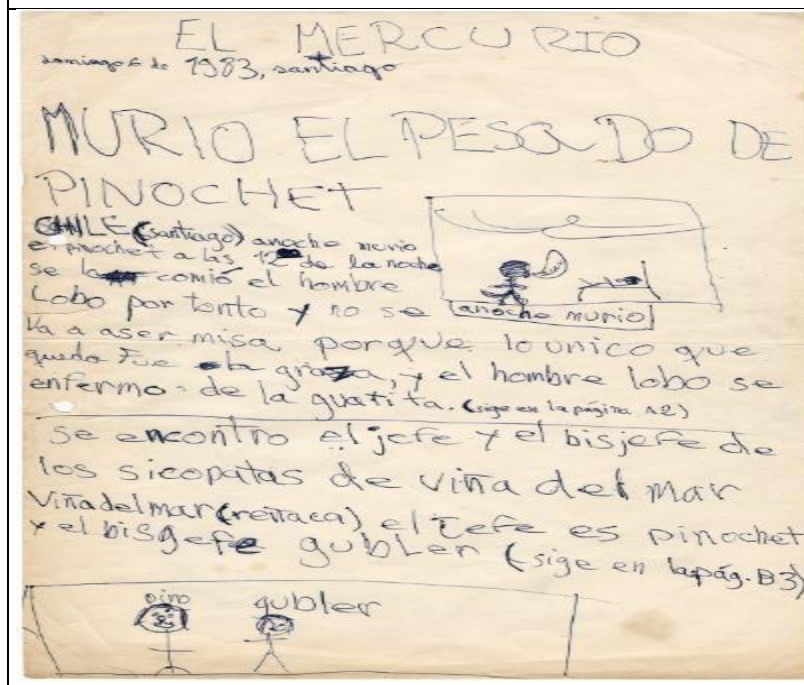 EL MERCURIO
domingo 6 de 1983, santiago
MURIO EL PESADO DE
PINOCHET
CHILE (santiago) anoche murio
el pinochet a las 12 de la noche
se lo comió el hombre
Lobo por tonto y no se
anoche murio
va a aser misa porque lo unico que
quedo Fue la graza, y el hombre lobo se
enfermo de la guatita. (sige en la página A2)
se encontro el jefe y el bisjefe de
los sicopatas de viña del mar
Viña del mar (reñaca) el Jefe es pinochet
y el bisgefe gubler (sige en la pág. B3)
pino gubler